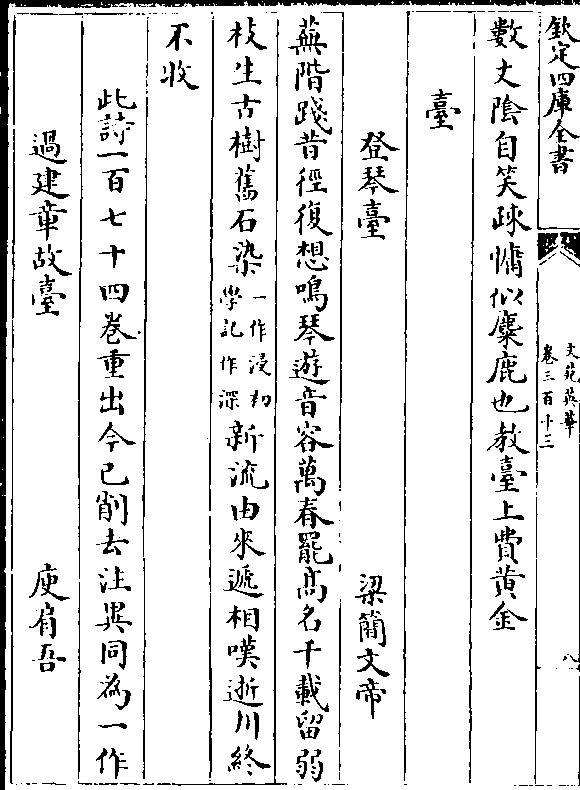 欽定四庫全書
文苑英華
卷三百十三
八
數丈陰自笑疎慵似麋鹿也教臺上費黄金
臺
登琴臺 梁簡文帝
蕪階踐昔徑復想鳴琴遊音容萬春罷髙名千載留弱
枝生古樹舊石染一作浸初學記作深新流由來遞相嘆逝川終
不收
此詩一百七十四卷重出今已削去注異同為一作
過建章故臺 庾肩吾